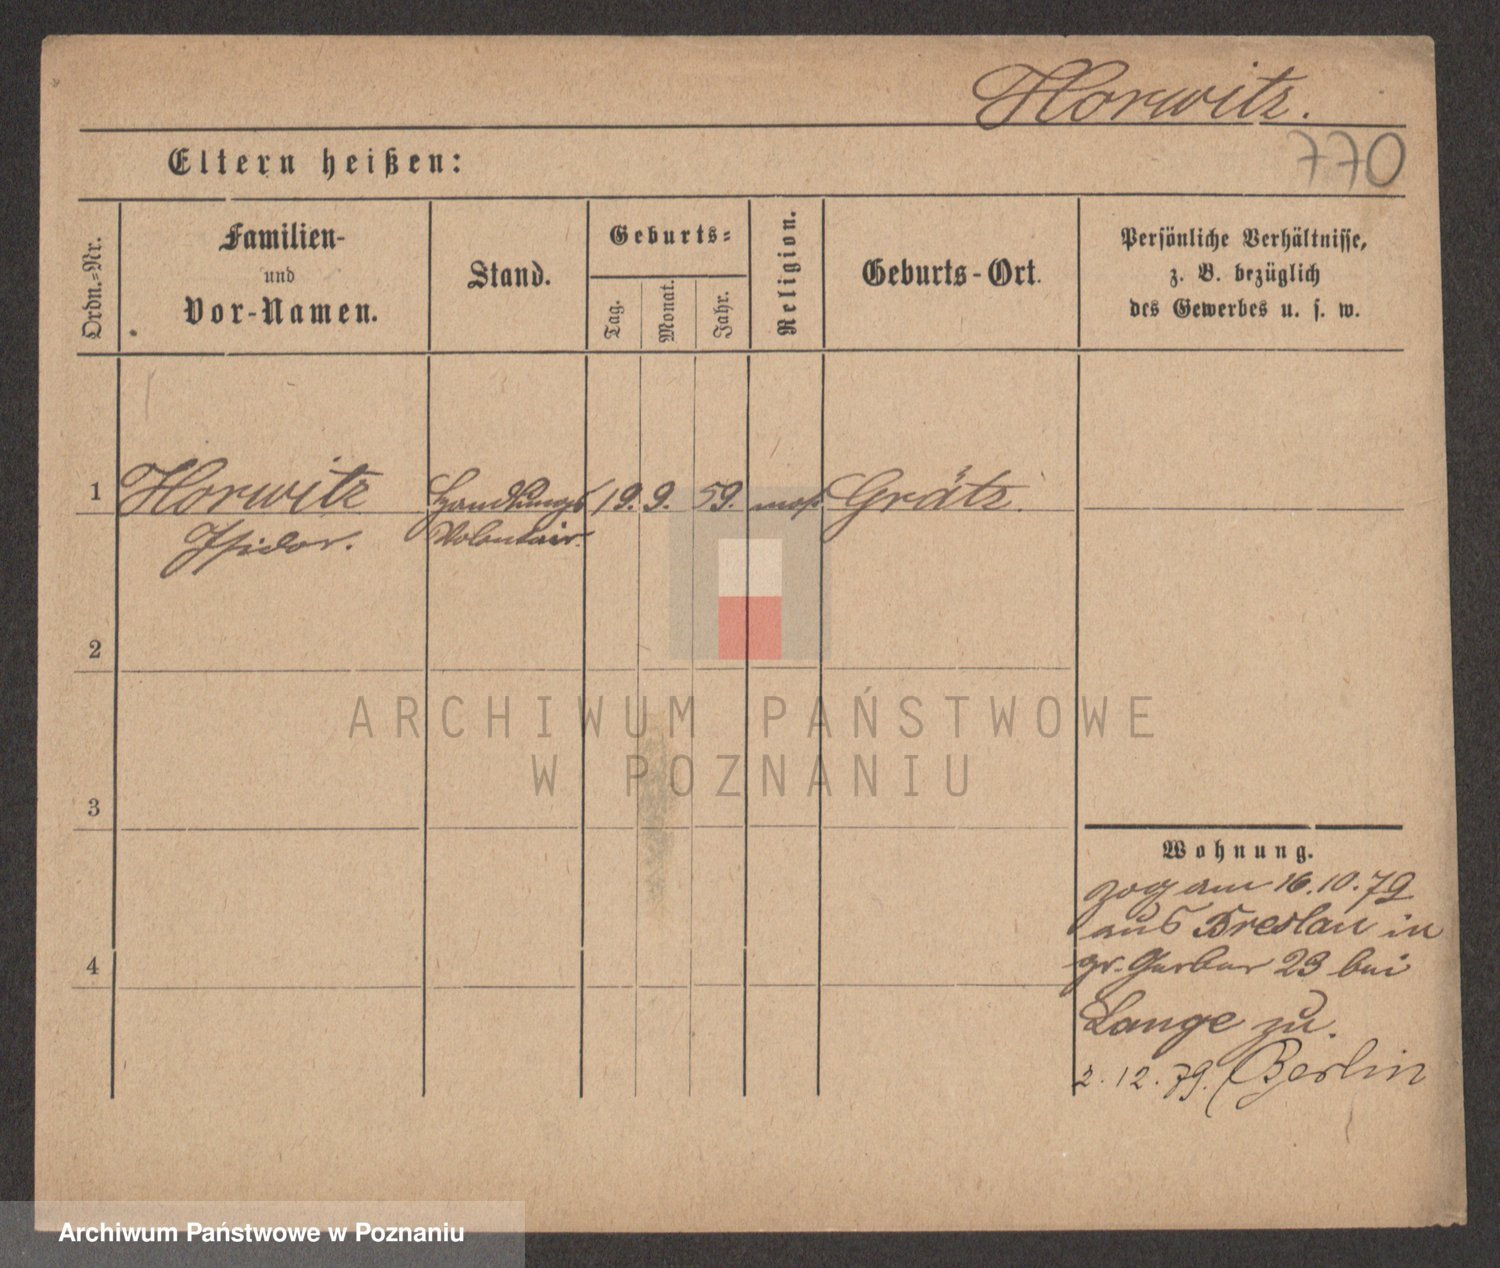 Horwitz.
770
Eltern heißen:
Ordn.-Nr.
Familien-
und
Vor-Namen.
Stand.
Geburts-
Tag.
Monat.
Jahr.
Religion.
Geburts-Ort.
Persönliche Verhältnisse,
z. B. bezüglich
des Gewerbes u. s. w.
1 Horwitz Handlungs 19. 9. 59. mos Grätz.
Isidor. Volontair.
2
3
4
Wohnung.
zog am 16.10.79
aus Breslau in
gr. Gerber 23 bei
Lange zu.
2.12.79. Berlin
ARCHIWUM PAŃSTWOWE
W POZNANIU
Archiwum Państwowe w Poznaniu